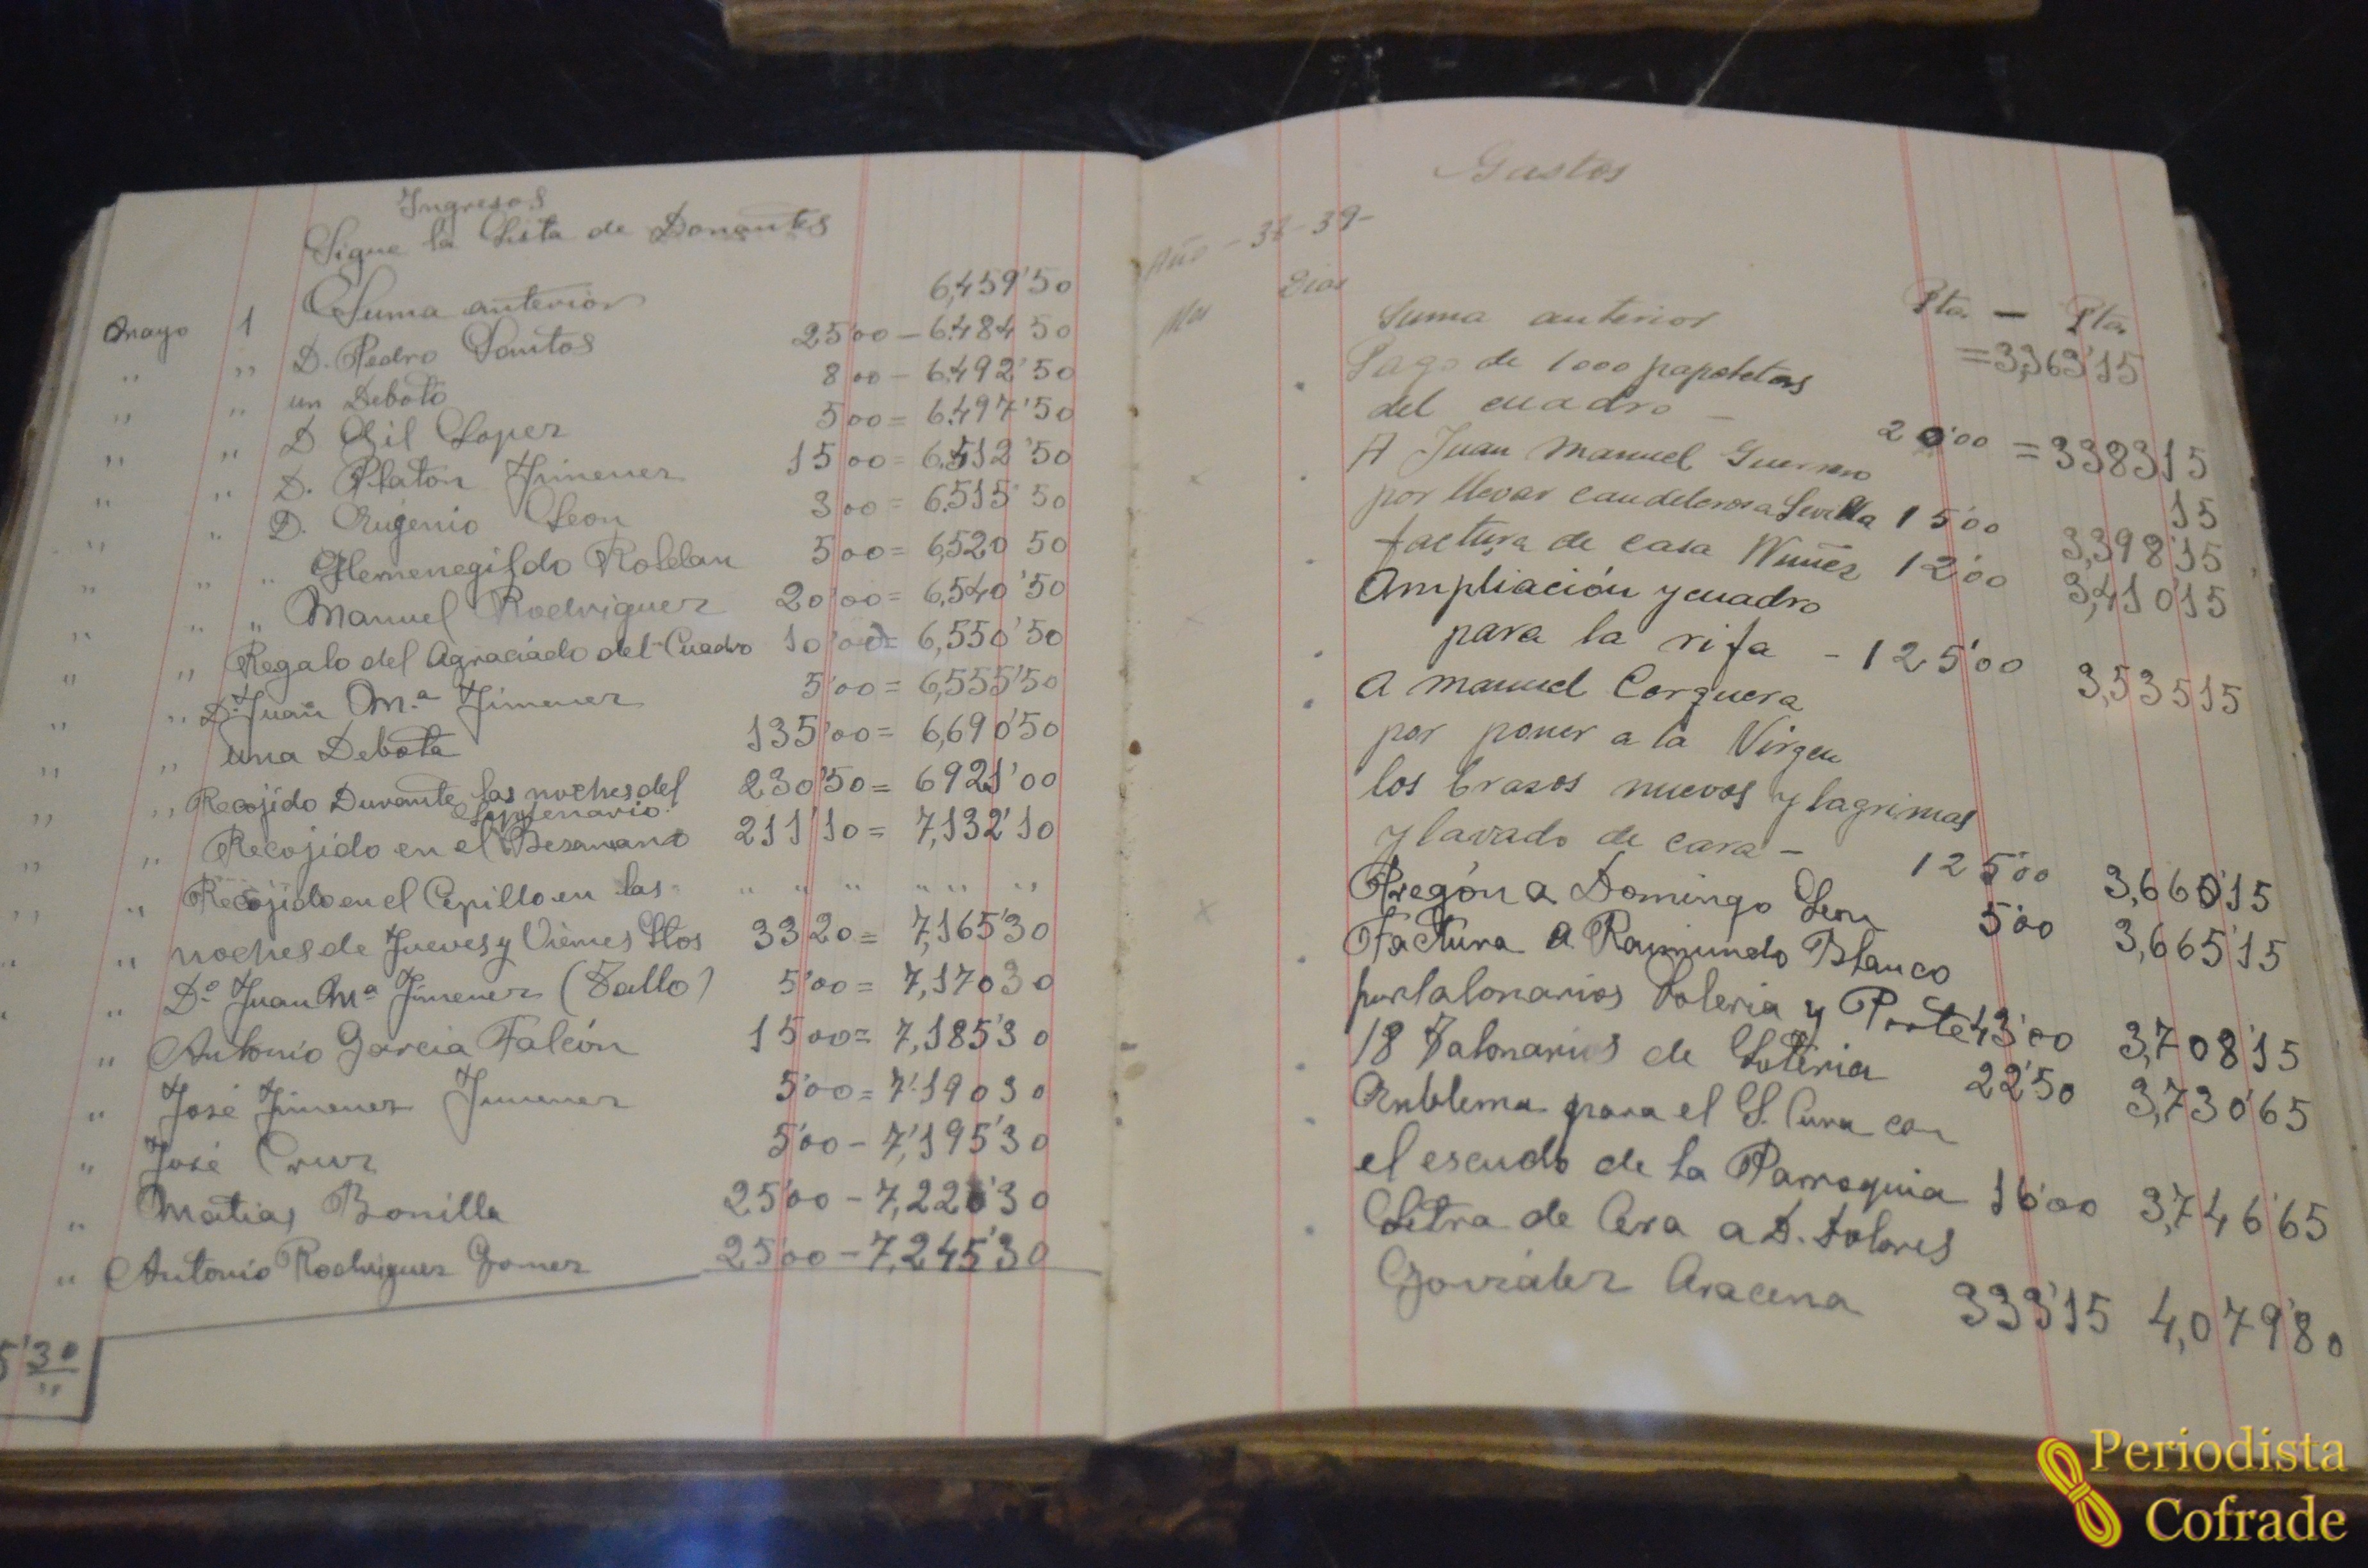 Ingresos
Sigue la Lista de Donantes
Suma anterior 6,459'50
Mayo 1 D. Pedro Santos 25'00 - 6.484 50
" " un Deboto 8 00 - 6.492'50
" " D Gil Lopez 5 00 = 6.497'50
" " D. Platon Jimenez 15 00 = 6.512'50
" " D. Eugenio Leon 3 00 = 6.515'50
" " Hemenegildo Roldan 5 00 = 6,520 50
" " " Manuel Rodriguez 20'00 = 6,540'50
" " " Regalo del Agraciado del Cuadro 10'00 = 6,550'50
" " D. Juan M.ª Jimenez 5'00 = 6,555'50
" " una Debota 135'00 = 6,690'50
" " Recojido Durante las noches del Septenario 230'50 = 6921'00
" " Recojido en el Besamano 211'10 = 7,132'10
" " Recojido en el Cepillo en las " " " " " "
" " noches de Jueves y Viernes Stos 33 20 = 7,165'30
" " Dº Juan Mª Jimenez (Tallo) 5'00 = 7,170 30
" Antonio Garcia Falcón 15 00 = 7,185'30
" José Jimenez Jimenez 5'00 = 7.190 30
" José Cruz 5'00 - 7,195'30
" Matias Bonilla 25'00 - 7,220'30
" Antonio Rodriguez Gomez 25'00 - 7,245'30
5'30
"
Gastos
Año - 38 - 39 -
Mes Dias
Pta. — Pta.
Suma anterior = 3,363'15
Pago de 1000 papeletas
del cuadro — 20'00 = 338315
A Juan Manuel Guerrero 15
por llevar candeleros a Sevilla 15'00 3,398'15
factura de casa Nuñez 12'00 3,410'15
Ampliación y cuadro
para la rifa - 125'00 3,53515
A Manuel Cerquera
por poner a la Virgen
los brazos nuevos y lagrimas
y lavado de cara - 125'00 3,660'15
Pregón a Domingo Leon 5'00 3,665'15
Factura a Raimundo Blanco
por talonarios Loleria y Porte 43'00 3,708'15
18 Talonarios de Loteria 22'50 3,730'65
Emblema para el S. Cura con
el escudo de la Parroquia 16'00 3,746'65
Letra de Cera a D. Dolores
Gonzalez Aracena 333'15 4,079'80
Periodista
Cofrade